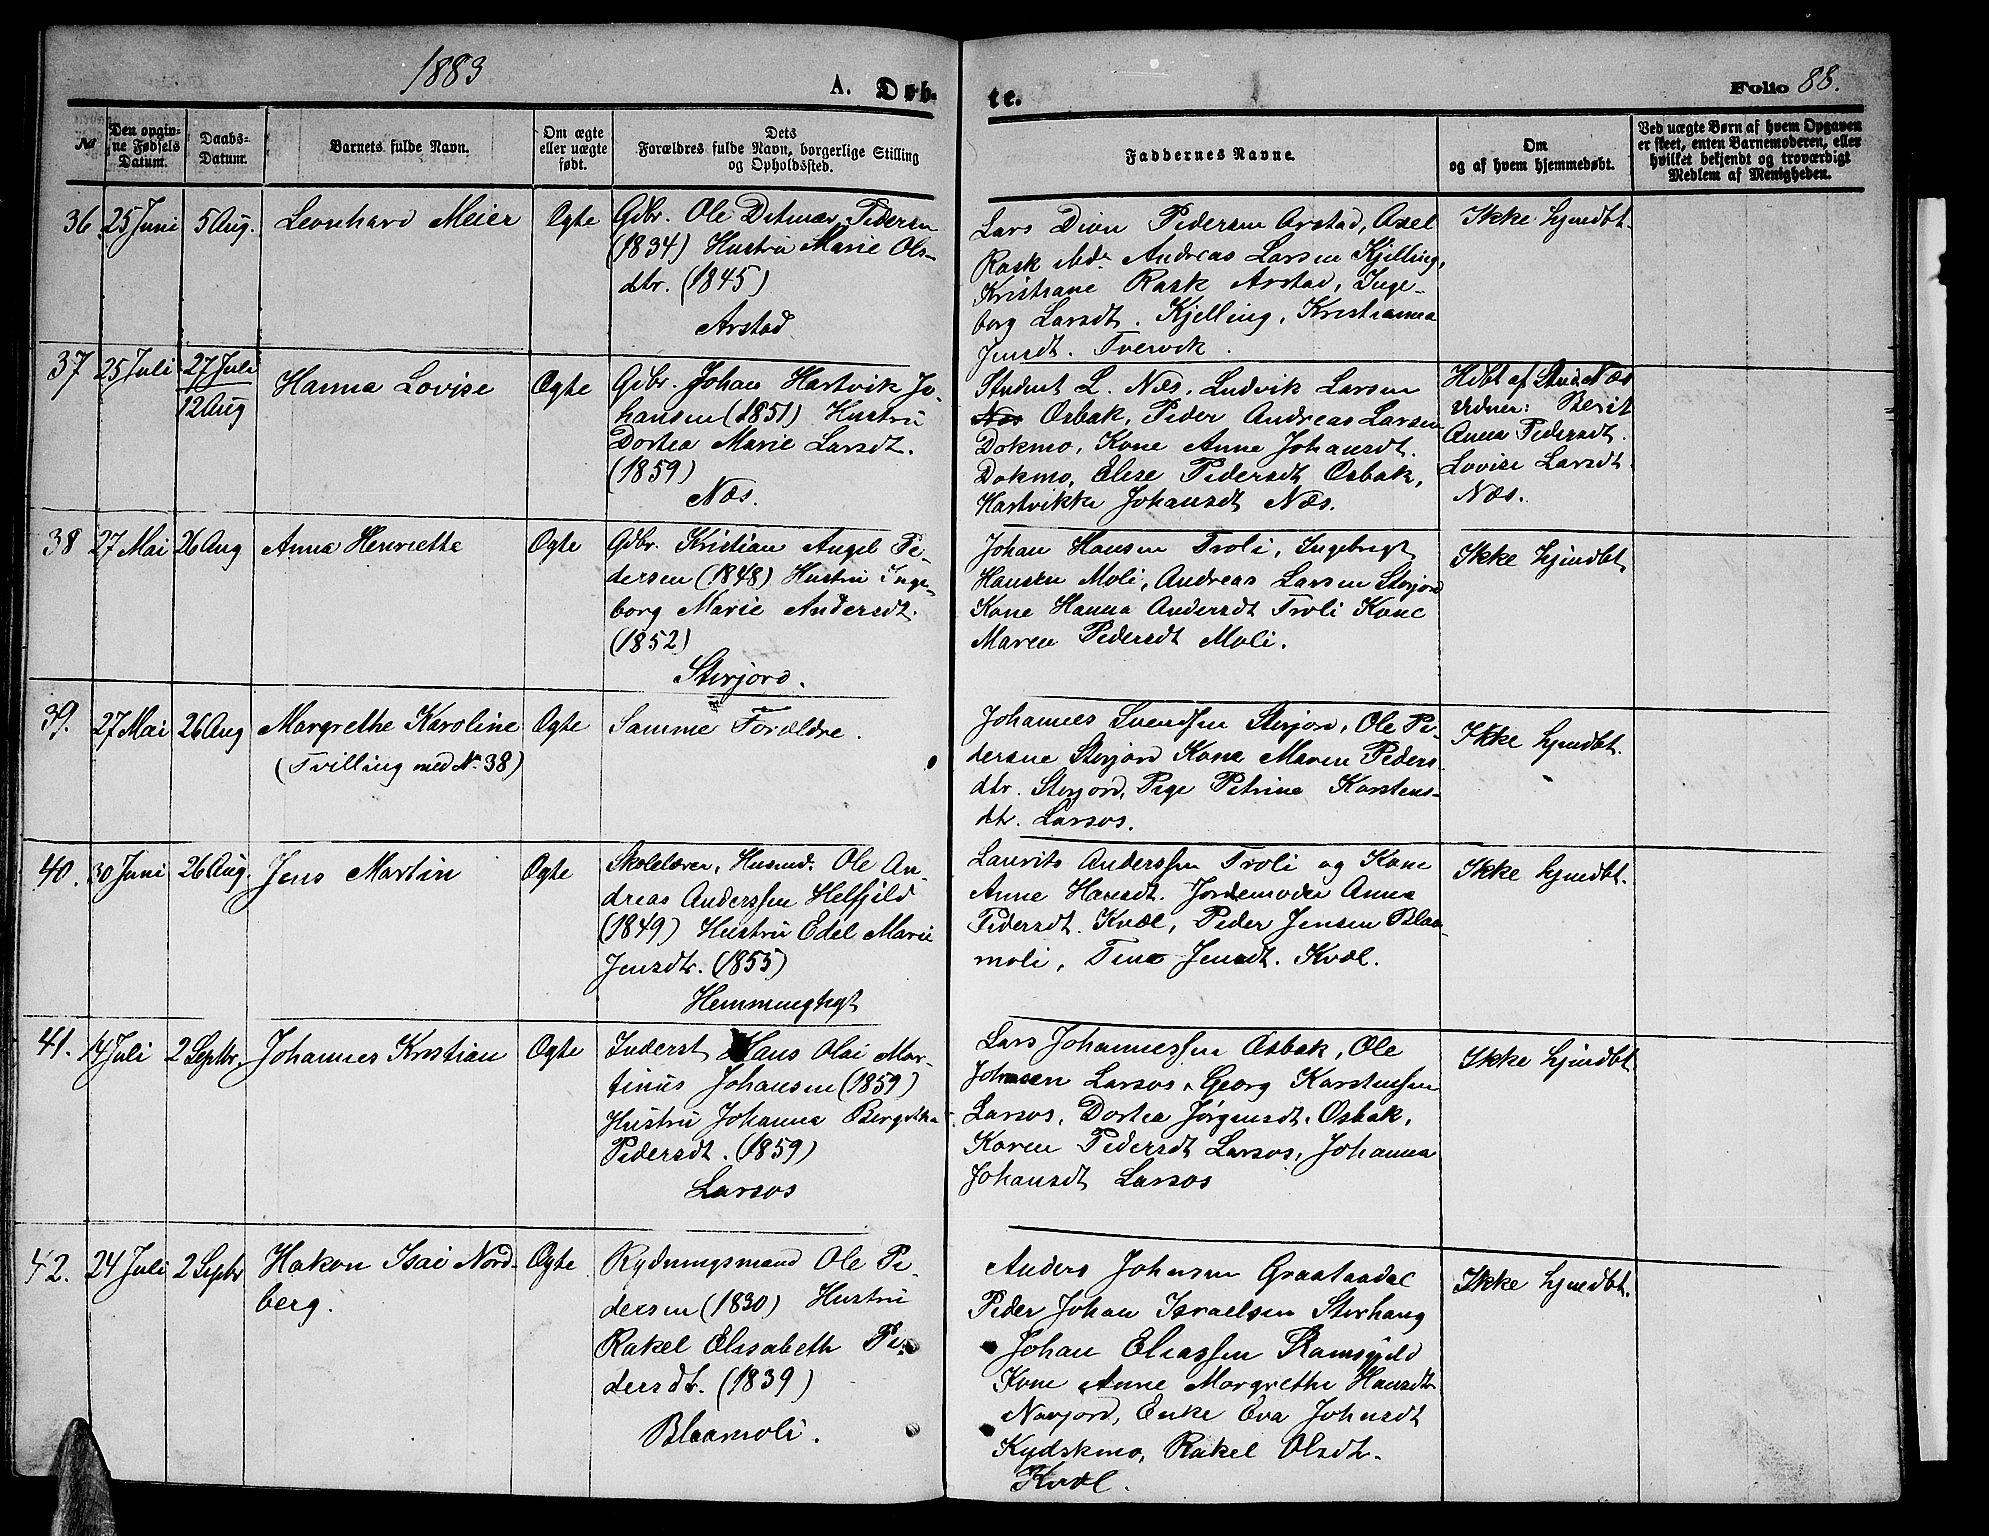 1883
A. Døb-
te.
Folio 88.
No
Den opgiv-
ne Fødsels
Datum.
Daabs-
Datum.
Barnets fulde Navn.
Om ægte
eller uægte
født.
Dets
Forældres fulde Navn, borgerlige Stilling
og Opholdssted.
Faddernes Navne.
Om
og af hvem hjemmedøbt.
Ved uægte Børn af hvem Opgaven
er skeet, enten Barnemoderen, eller
hvilket bekjendt og troværdigt
Medlem af Menigheden.
36. 25 Juni 5 Aug. Leonhard Meier Ægte
Gdbr. Ole Ditmar Pedersen
(1834) Hustru Marie Ols-
dtr. (1845)
Arstad
Lars Dion Pedersen Arstad, Axel
Rask ibd. Andreas Larsen Kjelling,
Kristiane Rask Arstad, Inge-
borg Larsdt. Kjelling, Kristianna
Jensdt. Tvervik.
Ikke hjmdbt.
37 25 Juli 27 Juli
12 Aug
Hanna Lovise Ægte
Gdbr. Johan Hartvik Jo-
hansen (1851) Hustru
Dortea Marie Larsdt.
(1859)
Næs.
Student L. Næs, Ludvik Larsen
Næs Osbak, Peder Andreas Larsen
Dokmo, Kone Anne Johansdt.
Dokmo, Elise Pedersdt Osbak,
Hartvikke Johansdt Næs.
Hdbt af Stud. Næs
Vidner: Berit
Anna Pedersdt.
Lovise Larsdt
Næs.
38 27 Mai 26 Aug Anna Henriette Ægte
Gdbr. Kristian Angel Pe-
dersen (1848) Hustru Inge-
borg Marie Andersdt.
(1852)
Storjord.
Johan Hansen Troli, Ingebrigt
Hansen Moli, Andreas Larsen Storjord
Kone Hanna Andersdt Troli Kone
Maren Pedersdt Moli.
Ikke hjmdbt.
39. 27 Mai 26 Aug Margrethe Karoline
(Tvilling med No. 38)
Ægte
Samme Forældre.
Johannes Svendsen Storjord, Ole Pe-
dersne Storjord Kone Maren Peders
dtr. Storjord, Pige Petrine Karstens-
dtr. Larsos.
Ikke hjmdbt.
40. 30 Juni 26 Aug. Jens Martin Ægte
Skolelærer, Husmd. Ole An-
dreas Anderssen Helfjeld
(1849) Hustru Edel Marie
Jensdtr. (1855)
Laurits Anderssen Troli og Kone
Anne Hansdt. Jordemoder Anna
Pedersdt. Kvæl, Peder Jensen Blaa-
moli, Tina Jensdt. Kvæl.
Ikke hjmdbt.
41. 14 Juli 2 Septbr. Johannes Kristian Ægte
Inderst Hans Olai Mar-
tinus Johansen (1859)
Hustru Johanna Bergitha
Pedersdt. (1859)
Larsos
Lars Johannessen Osbak, Ole
Johnsen Larsos, Georg Karstensen
Larsos, Dortea Jørgensdt. Osbak,
Karen Pedersdt Larsos, Johanna
Johansdt Larsos
Ikke hjmdbt
42. 24 Juli 2 Septbr Hakon Isai Nord-
berg.
Ægte
Rydningsmand Ole Pe-
dersen (1830) Hustru
Rakel Elisabeth Pe-
dersdt. (1839)
Blaamoli.
Anders Johnsen Graataadal
Peder Johan Israelsen Storhaug
Johan Eliassen Ramsgjeld
Kone Anne Margrethe Hansdt.
Navjord, Enke Eva Johnsdt
Kvæl.
Rakel Olsdt.
Ikke hjmdbt.